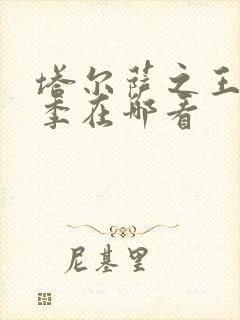 塔尔萨之王
季在哪看
尼基里